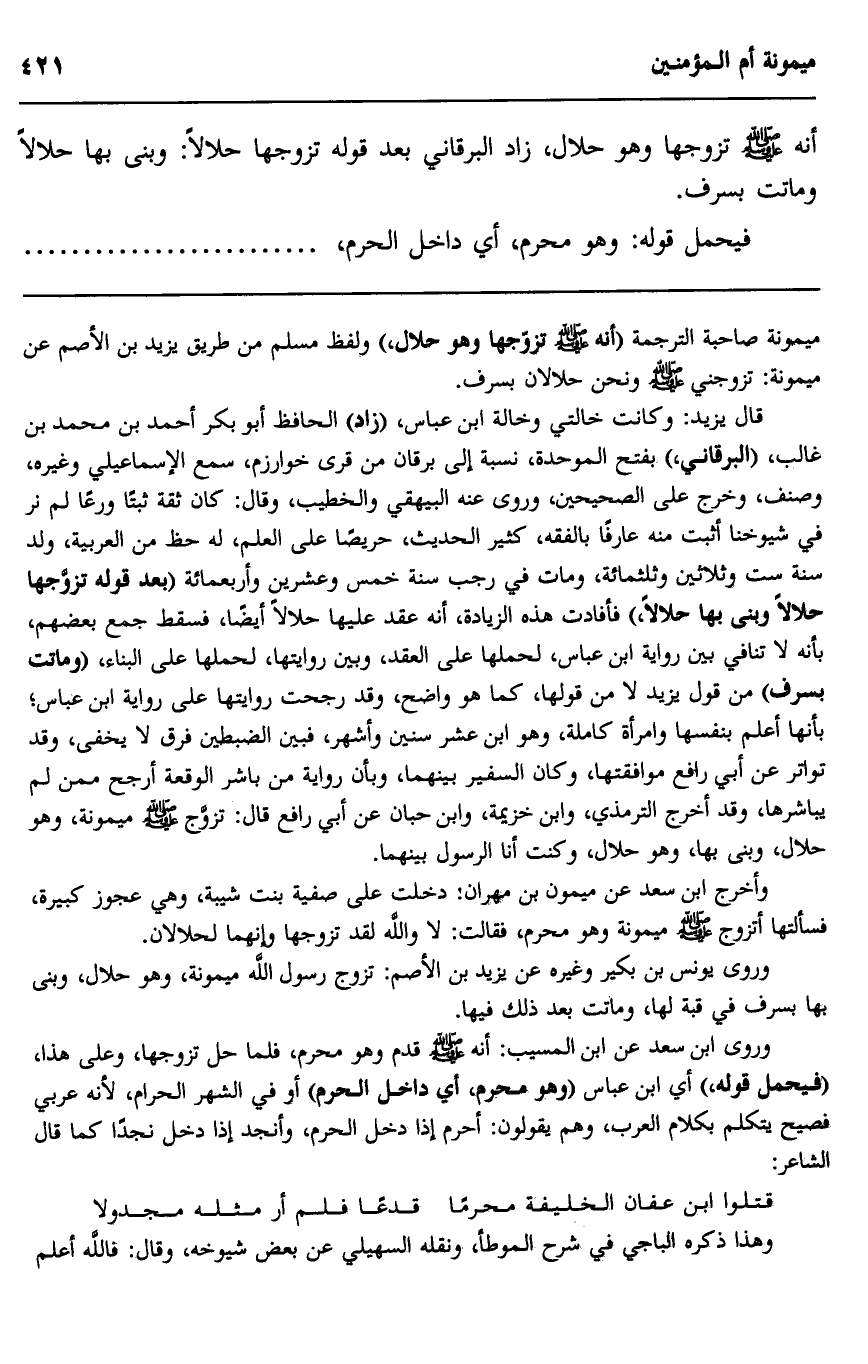 ميمونة أم المؤمنين ٤٢١
أنه ﷺ تزوجها وهو حلال، زاد البرقاني بعد قوله تزوجها حلالاً: وبنى بها حلالاً
وماتت بسرف.
فيحمل قوله: وهو محرم، أي داخل الحرم، .........................
ميمونة صاحبة الترجمة (أنه ﷺ تزوّجها وهو حلال،) ولفظ مسلم من طريق يزيد بن الأصم عن
ميمونة: تزوجني ﷺ ونحن حلالان بسرف.
قال يزيد: وكانت خالتي وخالة ابن عباس، (زاد) الحافظ أبو بكر أحمد بن محمد بن
غالب، (البرقاني،) بفتح الموحدة، نسبة إلى برقان من قرى خوارزم، سمع الإسماعيلي وغيره،
وصنف، وخرج على الصحيحين، وروى عنه البيهقي والخطيب، وقال: كان ثقة ثبتًا ورعًا لم نر
في شيوخنا أثبت منه عارفًا بالفقه، كثير الحديث، حريصًا على العلم، له حظ من العربية، ولد
سنة ست وثلاثين وثلثمائة، ومات في رجب سنة خمس وعشرين وأربعمائة (بعد قوله تزوَّجها
حلالاً وبنى بها حلالاً،) فأفادت هذه الزيادة، أنه عقد عليها حلالاً أيضًا، فسقط جمع بعضهم،
بأنه لا تنافي بين رواية ابن عباس، لحملها على العقد، وبين روايتها، لحملها على البناء، (وماتت
بسرف) من قول يزيد لا من قولها، كما هو واضح، وقد رجحت روايتها على رواية ابن عباس؛
بأنها أعلم بنفسها وامرأة كاملة، وهو ابن عشر سنين وأشهر، فبين الضبطين فرق لا يخفى، وقد
تواتر عن أبي رافع موافقتها، وكان السفير بينهما، وبأن رواية من باشر الوقعة أرجح ممن لم
يباشرها، وقد أخرج الترمذي، وابن خزيمة، وابن حبان عن أبي رافع قال: تزوَّج ﷺ ميمونة، وهو
حلال، وبنى بها، وهو حلال، وكنت أنا الرسول بينهما.
وأخرج ابن سعد عن ميمون بن مهران: دخلت على صفية بنت شيبة، وهي عجوز كبيرة،
فسألتها أتزوج ﷺ ميمونة وهو محرم، فقالت: لا والله لقد تزوجها وإنهما لحلالان.
وروى يونس بن بكير وغيره عن يزيد بن الأصم: تزوج رسول الله ميمونة، وهو حلال، وبنى
بها بسرف في قبة لها، وماتت بعد ذلك فيها.
وروى ابن سعد عن ابن المسيب: أنه ﷺ قدم وهو محرم، فلما حل تزوجها، وعلى هذا،
(فيحمل قوله،) أي ابن عباس (وهو محرم، أي داخل الحرم) أو في الشهر الحرام، لأنه عربي
فصيح يتكلم بكلام العرب، وهم يقولون: أحرم إذا دخل الحرم، وأنجد إذا دخل نجدًا كما قال
الشاعر:
قتلوا ابن عفان الخليفة محرمًا قدعًا فلم أر مثله مجدولا
وهذا ذكره الباجي في شرح الموطأ، ونقله السهيلي عن بعض شيوخه، وقال: فالله أعلم